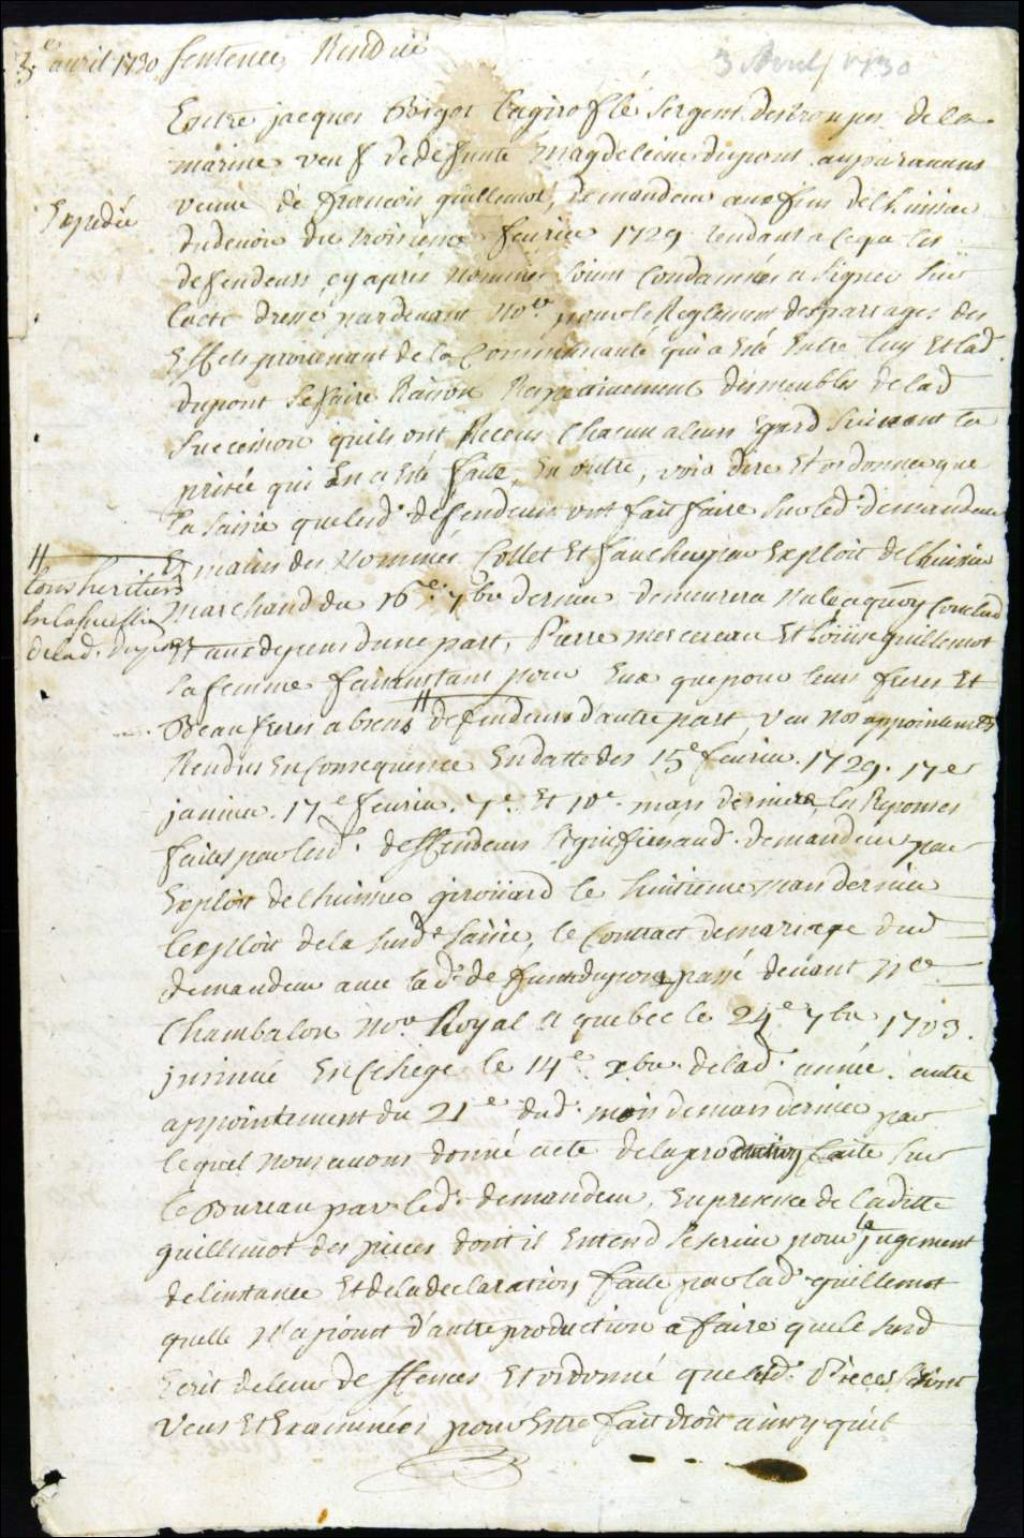 3.e avril 1730 Sentence Rendüe
3 Avril / 1730
Entre jacques Bigot Lagiroflé Sergent des troupes de la
marine veuf de defunte Magdeleine dupont auparavant
veuve de francois guillemot, demandeur aux fins de lhuissier
Expediée
dudevoir du troisieme fevrier 1729 tendant a ce que les
defendeurs cy apres nommés soient Condamnés a signer sur
lacte dressé pardevant no.re pour le Reglement des partages des
Effets provenant de la Communauté qui a Eté Entre luy Et lad.
dupont se faire Raison Reciproquement des meubles de lad
Succession quils ont Receus Chacun a leurs Egard Suivant la
prisée qui En a Eté faite, En outre, voir dire Et ordonner que
la Saisie que lesd. defendeurs ont fait faire sur led. demandeur
Es mains des Nommés Collet Et faucher par Exploit de lhuissier
marchand du 16.e 7bre dernier demeurera Nulle a quoy Conclud
Et aux depens dune part, Pierre mercereau Et Loüise guillemot
H
tous heritiers
En la succession
de lad. dupont
sa femme faisant tant pour Eux que pour leurs freres Et
Beaufreres absens H defendeurs dautre part, veu nos appointements
Rendus En Consequence En datte des 15.e fevrier 1729. 17.e
janvier. 17.e fevrier. 7.e Et 10.e mars derniers, les Reponses
faites par lesd. deffendeurs signifiées aud. demandeur par
Exploit de lhuissier girouard le huitieme mars dernier
lexploit de la susd.e saisie, le Contract de mariage dud
demandeur avec lad.e defunte dupont passé devant M.e
Chambalon no.re Royal a quebec le 24.e 7bre 1703.
jnsinué En Ce siege le 14.e xbre de lad. année. autre
appointement du 21.e dud. mois de mars dernier par
lequel nous avons donné acte de la production faite sur
le Bureau par led. demandeur, En presence de ladite
guillemot des pieces dont il Entend se servir pour le jugement
de linstance Et de la declaration faite par lad. guillemot
quelle N'a point d'autre production a faire que le susd
Ecrit de leur deffences Et ordonné que lesd. Pieces seront
veus Et Examinées pour Estre fait droit ainsy quil